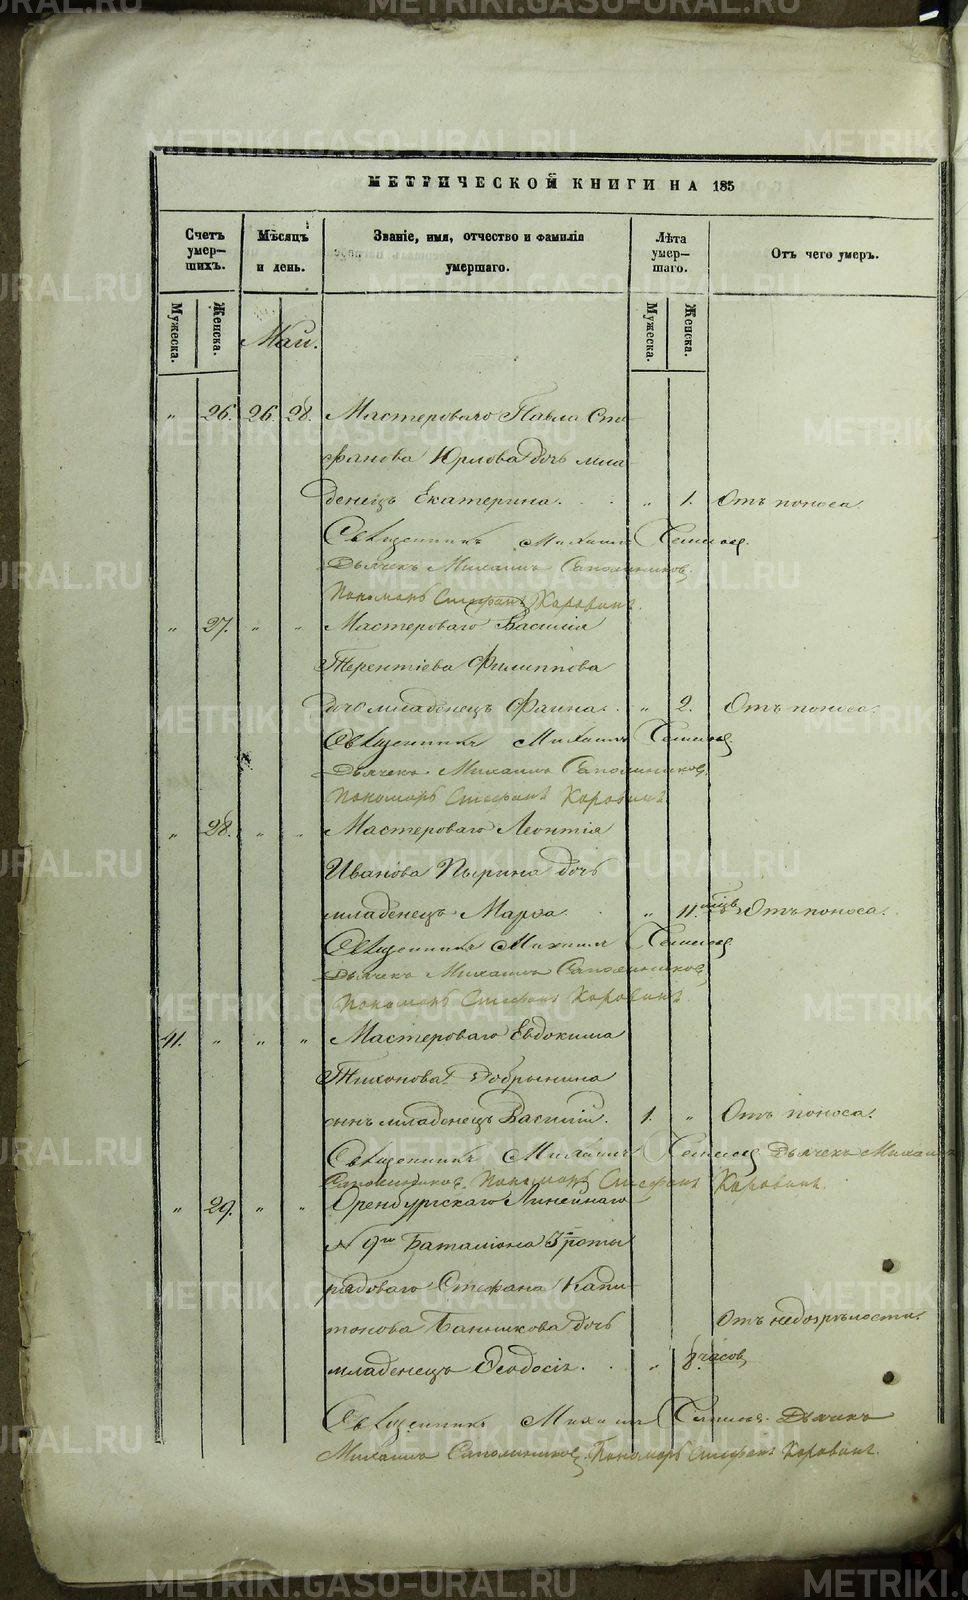 МЕТРИЧЕСКОЙ КНИГИ НА 185
Счетъ умер-шихъ.
Мѣсяцъ и день.
Званіе, имя, отчество и фамилія умершаго.
Лѣта умер-шаго.
Отъ чего умеръ.
Мужеска.
Женска.
Май.
Мужеска.
Женска.
„ 26. 26. 28. Мастероваго Павла Сте-
фанова Юрлова дочь мла-
денецъ Екатерина. „ 1. Отъ поноса.
Священникъ Михаилъ
Дьячекъ Михаилъ Сапожниковъ.
Пономарь Стефанъ Коровинъ.
„ 27. „ „ Мастероваго Василія
Терентіева Филиппова
дочь младенецъ Фаина. „ 2. Отъ поноса.
Священникъ Михаилъ
Дьячекъ Михаилъ Сапожниковъ.
Пономарь Стефанъ Коровинъ
„ 28. „ „ Мастероваго Леонтія
Иванова Пырина дочь
младенецъ Марѳа. „ 11. мѣсцъ Отъ поноса.
Священникъ Михаилъ
Дьячекъ Михаилъ Сапожниковъ,
Пономарь Стефанъ Коровинъ.
41. „ „ „ Мастероваго Евдокима
Тихонова Добрынина
сынъ младенецъ Василій. 1. „ Отъ поноса.
Священникъ Михаилъ Дьячекъ Михаилъ
Сапожниковъ. Пономарь Стефанъ Коровинъ.
„ 29. „ „ Оренбургскаго Линейнаго
N 9го Баталіона 3й роты
рядоваго Стефана Капи-
тонова Банникова дочь Отъ недозрѣлости.
младенецъ Ѳеодосія. „ 8. часов.
Священникъ Михаилъ Дьячекъ
Михаилъ Сапожниковъ. Пономарь Стефанъ Коровинъ.
METRIKI.GASO-URAL.RU